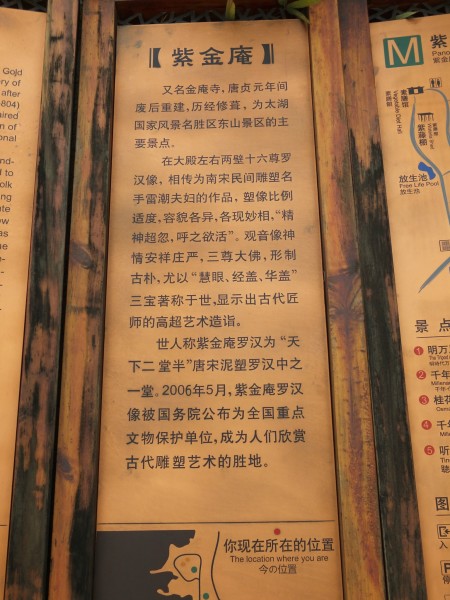 Gold
ry of
after
804)
ired
n of
onal
and-
d to
olk
ng
ate
ew
as
he
【紫金庵】
又名金庵寺，唐贞元年间
废后重建，历经修葺，为太湖
国家风景名胜区东山景区的主
要景点。
在大殿左右两壁十六尊罗
汉像，相传为南宋民间雕塑名
手雷潮夫妇的作品，塑像比例
适度，容貌各异，各现妙相，“精
神超忽，呼之欲活”。观音像神
情安祥庄严，三尊大佛，形制
古朴，尤以“慧眼、经盖、华盖”
三宝著称于世，显示出古代匠
师的高超艺术造诣。
世人称紫金庵罗汉为“天
下二堂半”唐宋泥塑罗汉中之
一堂。2006年5月，紫金庵罗汉
像被国务院公布为全国重点
文物保护单位，成为人们欣赏
古代雕塑艺术的胜地。
你现在所在的位置
The location where you are
今の位置
M
紫
Pano
紫金
紫藤棚
放生池
Free Life Pool
放生池
景 点
1 明万
2 千年
3 桂花
4 千年
5 听
图
入
P
停